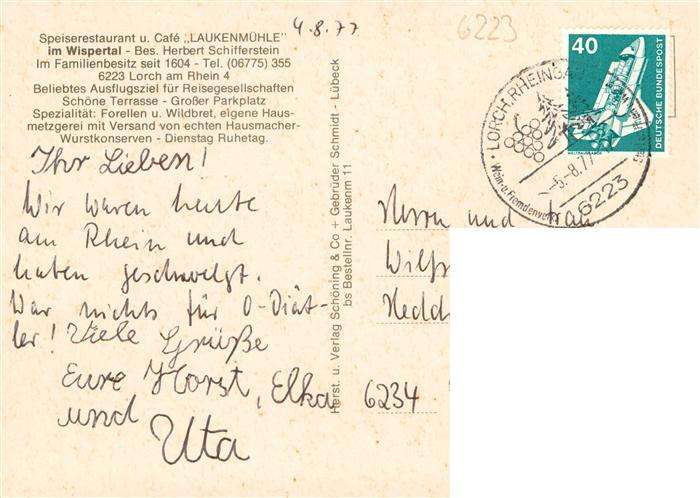 4.8.77
6223
Speiserestaurant u. Café „LAUKENMÜHLE"
im Wispertal - Bes. Herbert Schifferstein
Im Familienbesitz seit 1604 - Tel. (06775) 355
6223 Lorch am Rhein 4
Beliebtes Ausflugsziel für Reisegesellschaften
Schöne Terrasse - Großer Parkplatz
Spezialität: Forellen u. Wildbret, eigene Haus-
metzgerei mit Versand von echten Hausmacher-
Wurstkonserven - Dienstag Ruhetag.
Ihr Lieben!
Wir waren heute
am Rhein und
haben geschwelgt.
War nichts für O-Diät-
ler! Viele Grüße
Eure Horst, Elka
und
Uta
Herst. u. Verlag Schöning & Co + Gebrüder Schmidt - Lübeck
bs Bestellnr. Laukenm 11
40
DEUTSCHE BUNDESPOST
WELTRAUMLABOR
LORCH, RHEINGAU
-5.-8.77
6223
Wein- u. Fremdenver
Herrn und Frau
Wilf
Hedd
6234